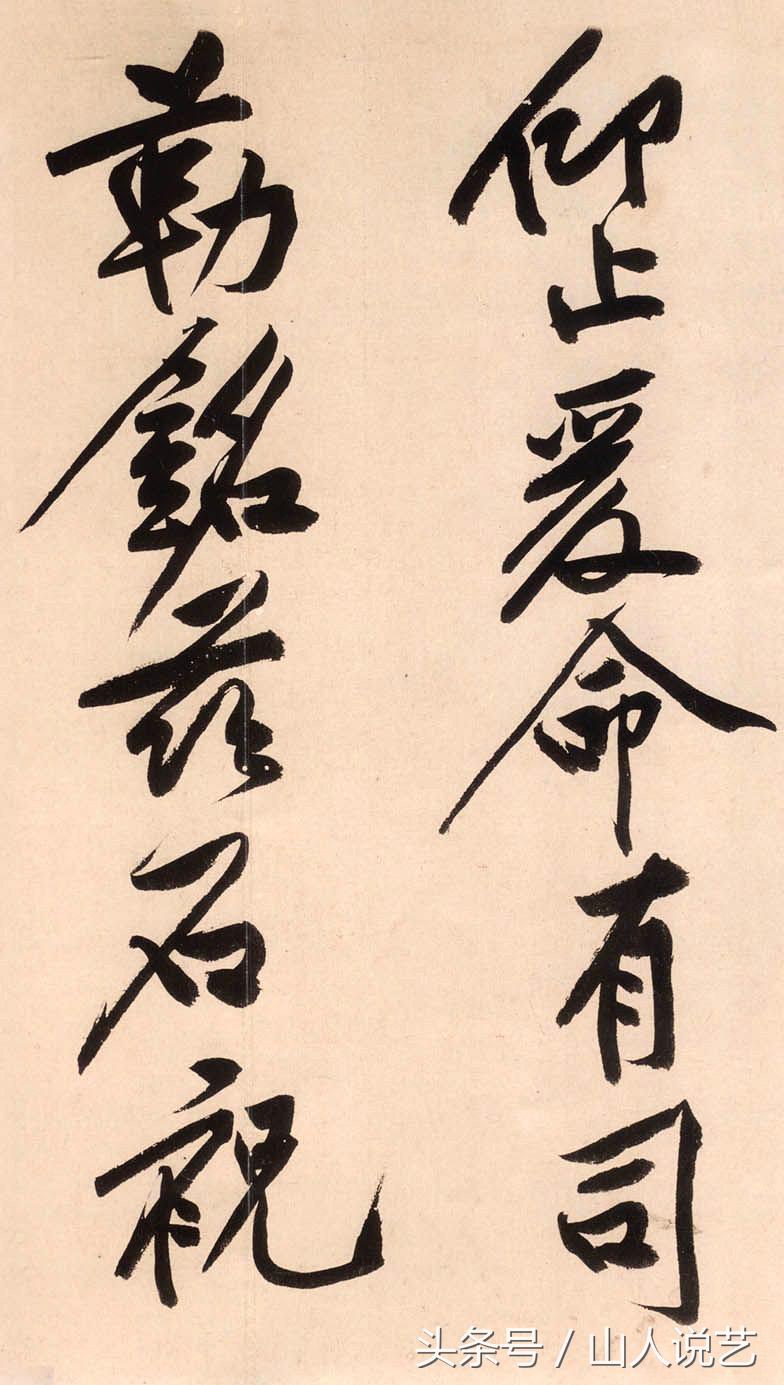 仰止爰命有司
勒銘茲石祝
头条号 / 山人说艺